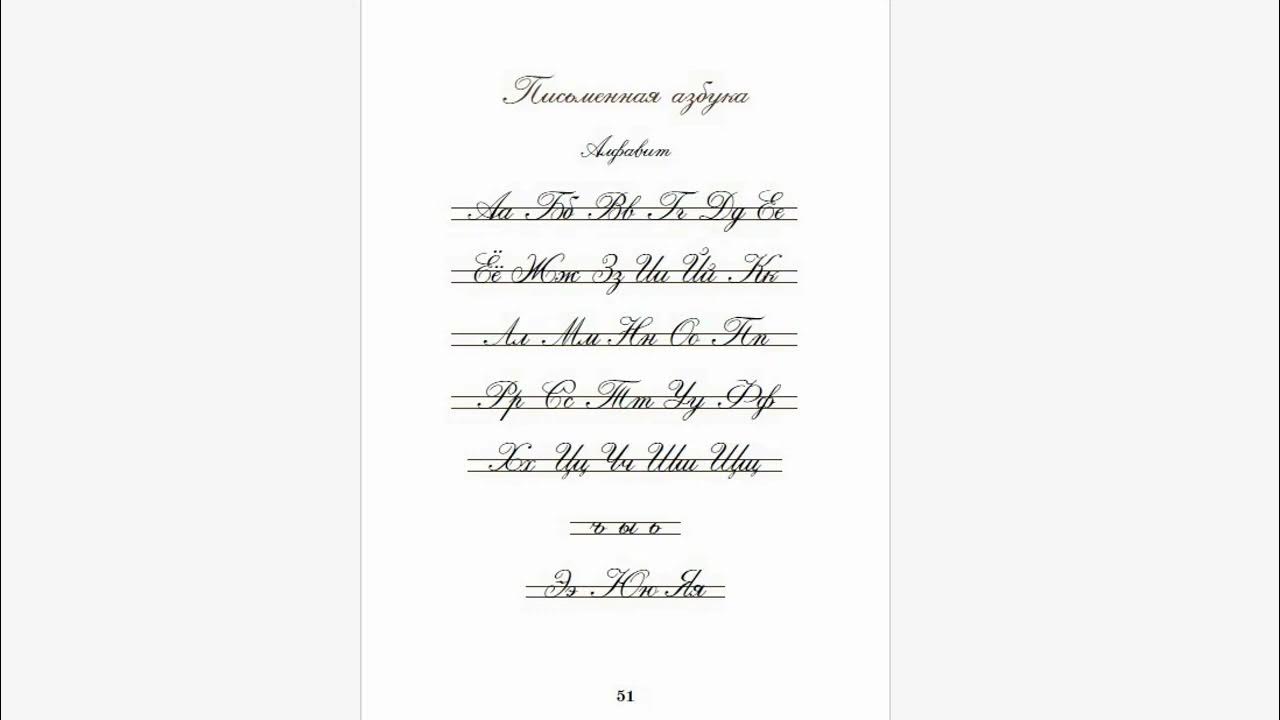 Письменная азбука
Алфавит
Аа Бб Вв Гг Дд Ее
Ёё Жж Зз Ии Йй Кк
Лл Мм Нн Оо Пп
Рр Сс Тт Уу Фф
Хх Цц Чч Шш Щщ
ъ ы ь
Ээ Юю Яя
51